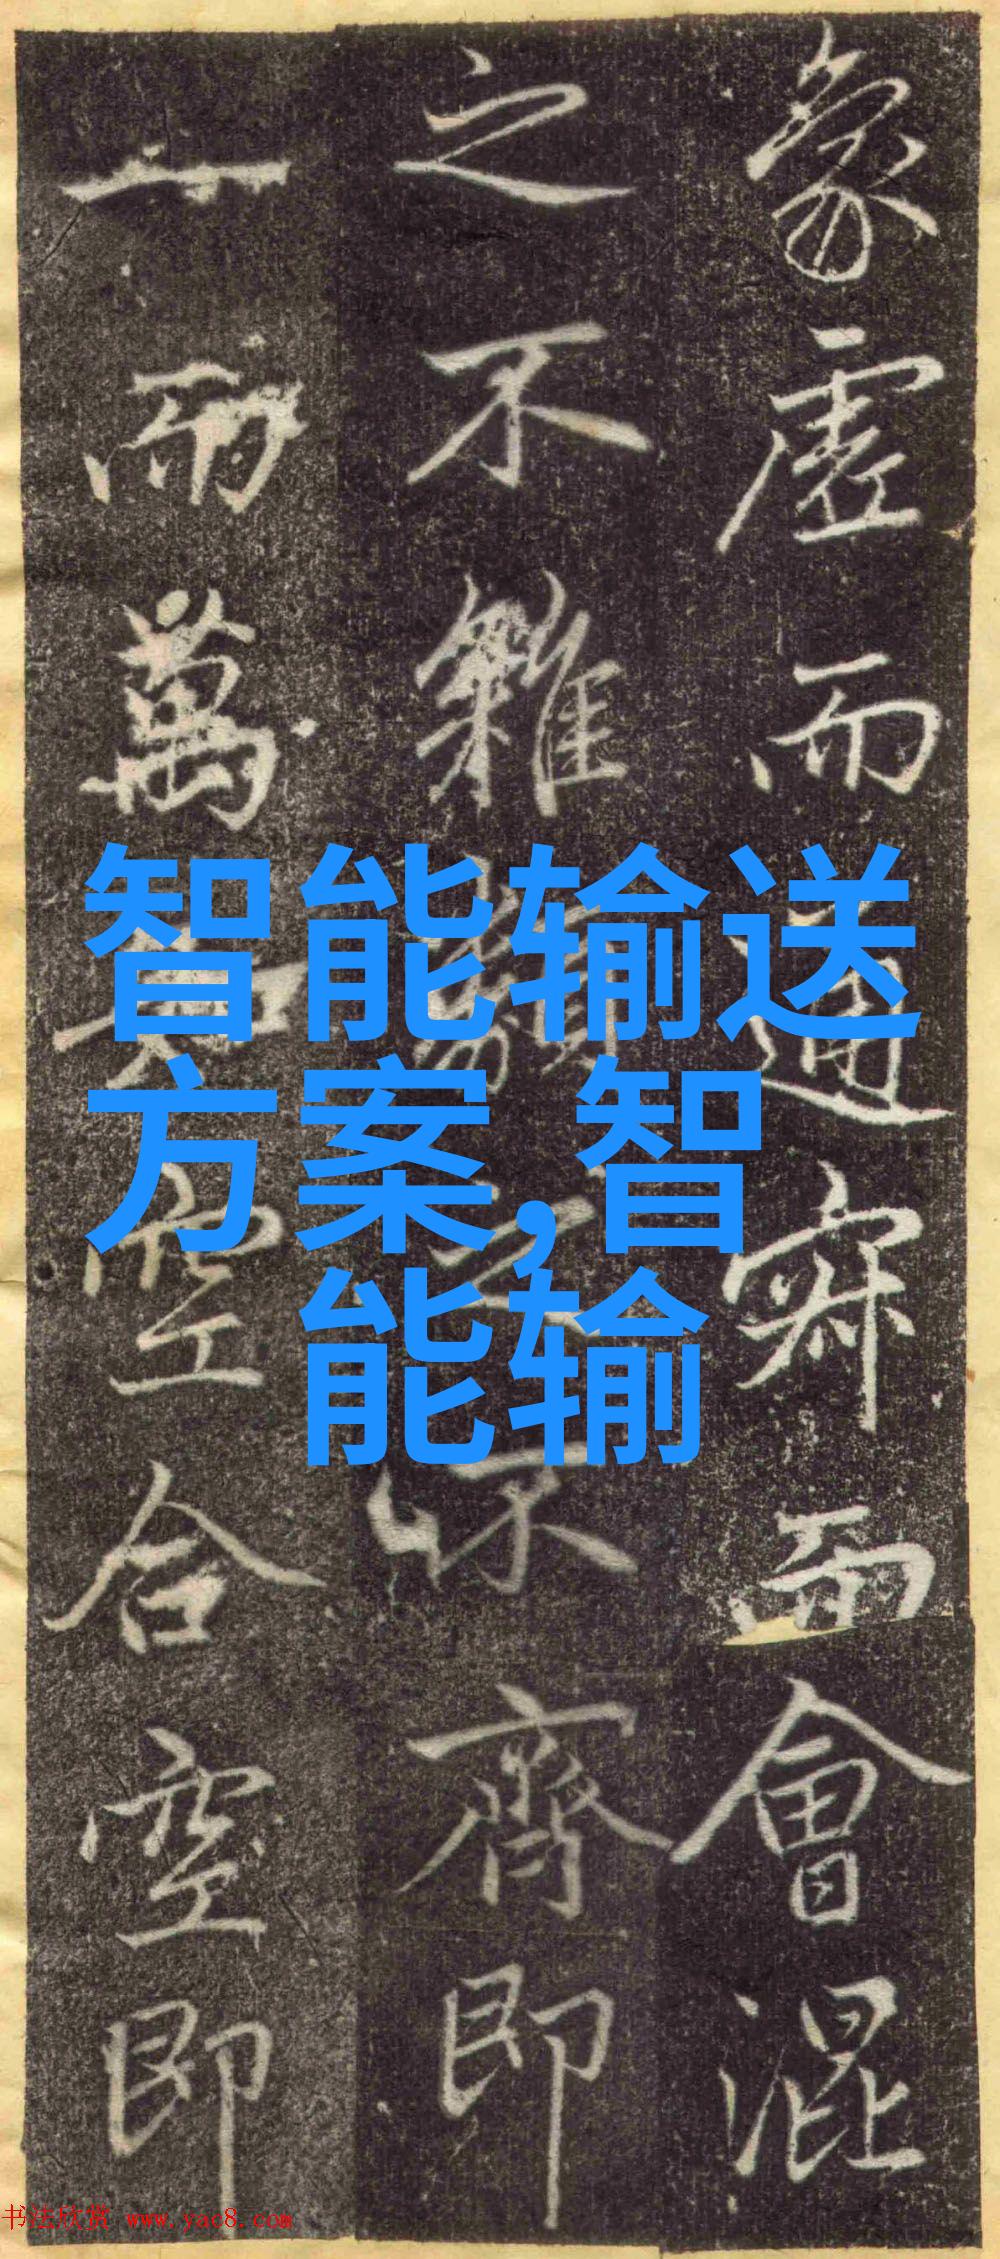 象虛而通寂而會混
之不雜類之不齊即
一而萬如空合空即
智能输送
方案,智
能输
书法欣赏 www.yac8.com